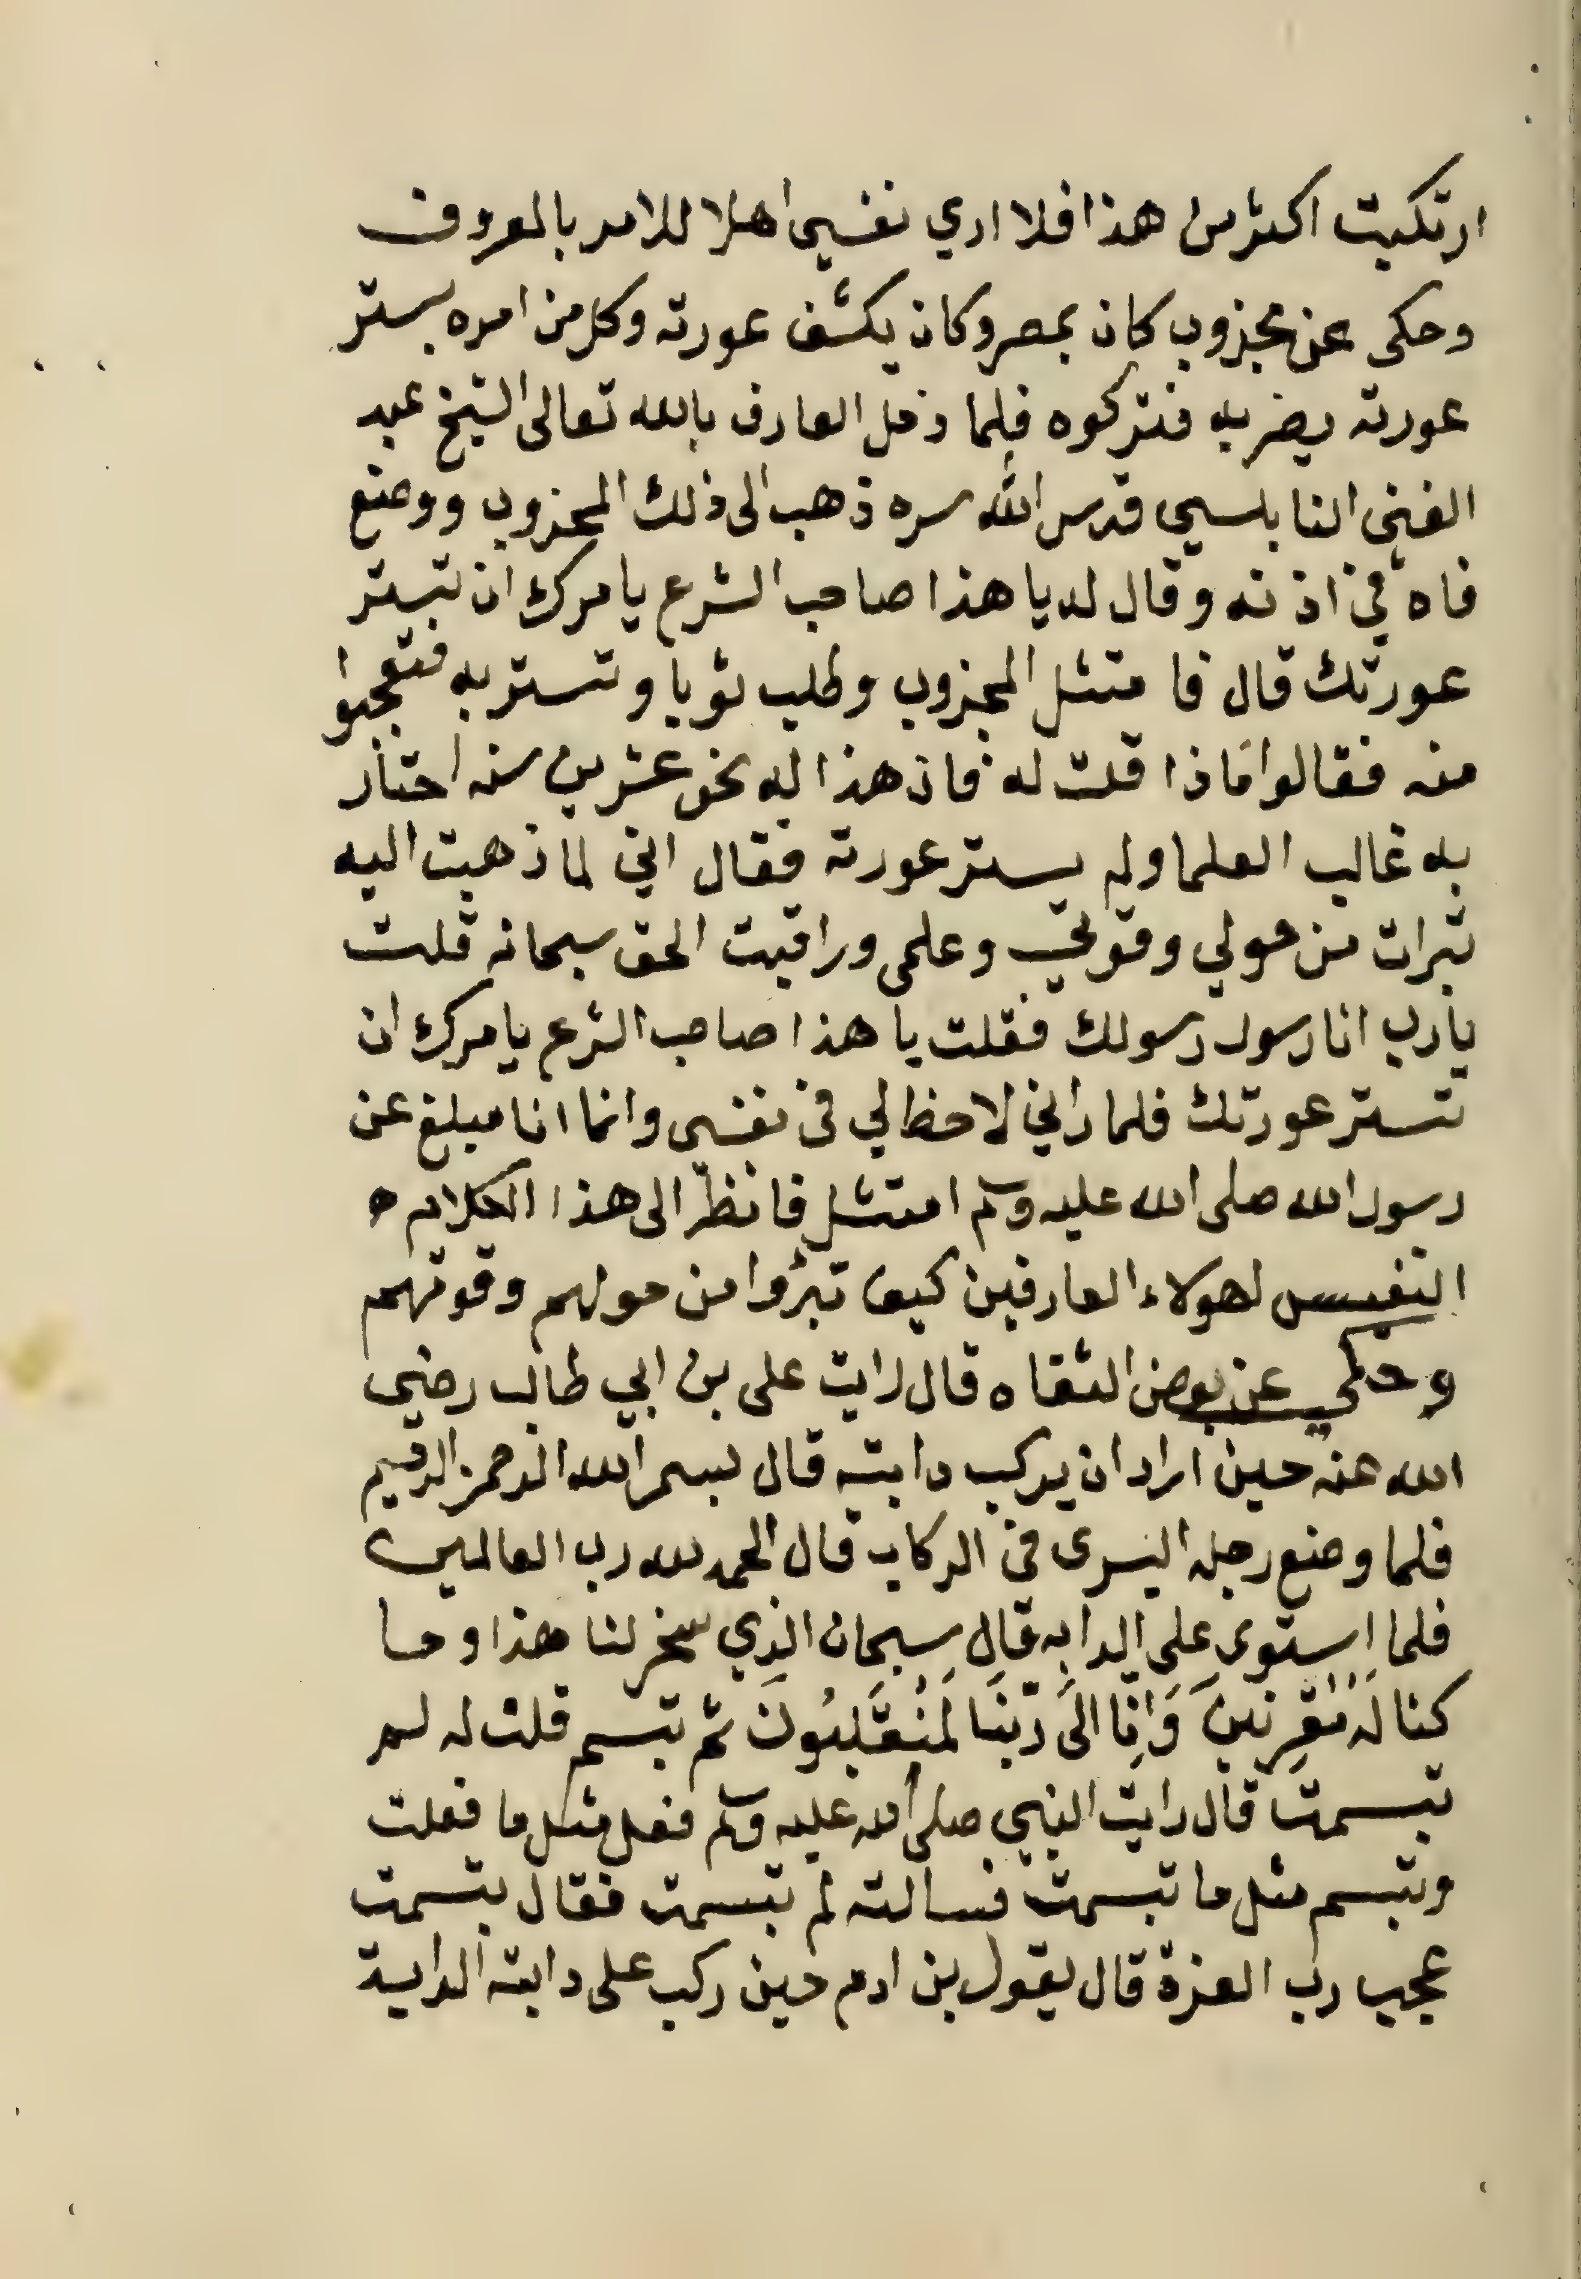 ارتكبت اكثر من هذا فلا اري نفسي اهلا للامر بالمعروف
وحكى عن مجذوب كان بمصر وكان يكشف عورته وكل من امره بستر
عورته يضربه فتركوه فلما دخل العارف بالله تعالى الشيخ عبد
الغني النابلسي قدس الله سره ذهب الى ذلك المجذوب ووضع
فاه في اذنه وقال له يا هذا صاحب الشرع يامرك ان تستر
عورتك قال فامتثل المجذوب وطلب ثوبا وتستر به فتعجبوا
منه فقالوا ماذا قلت له فان هذا له نحو عشرين سنه احتار
به غالب العلما ولم يستر عورته فقال اني لما ذهبت اليه
تبرات من حولي وقوتي وعلمي وراقبت الحق سبحانه قلت
يارب انا رسول رسولك فقلت يا هذا صاحب الشرع يامرك ان
تستر عورتك فلما راني لاحظ لي في نفسي وانما انا مبلغ عن
رسول الله صلى الله عليه وسلم امتثل فانظر الى هذا الكلام ه
النفيس لهولاء العارفين كيف تبرؤا من حولهم وقوتهم
وحكي عن بعض الثقاه قال رايت على بن ابي طالب رضي
الله عنه حين اراد ان يركب دابته قال بسم الله الرحمن الرحيم
فلما وضع رجله اليسرى في الركاب قال الحمد لله رب العالمين
فلما استوى على الدابه قال سبحان الذي سخر لنا هذا وما
كنا لَهُ مُقْرِنِينَ وَاِنَّا اِلَى رَبِّنَا لَمُنْقَلِبُونَ ثم تبسم قلت له لم
تبسمت قال رايت النبي صلى الله عليه وسلم فعل مثل ما فعلت
وتبسم مثل ما تبسمت فسالته لم تبسمت فقال تبسمت
عجب رب العزة قال يقول بن ادم حين ركب على دابته الدابة